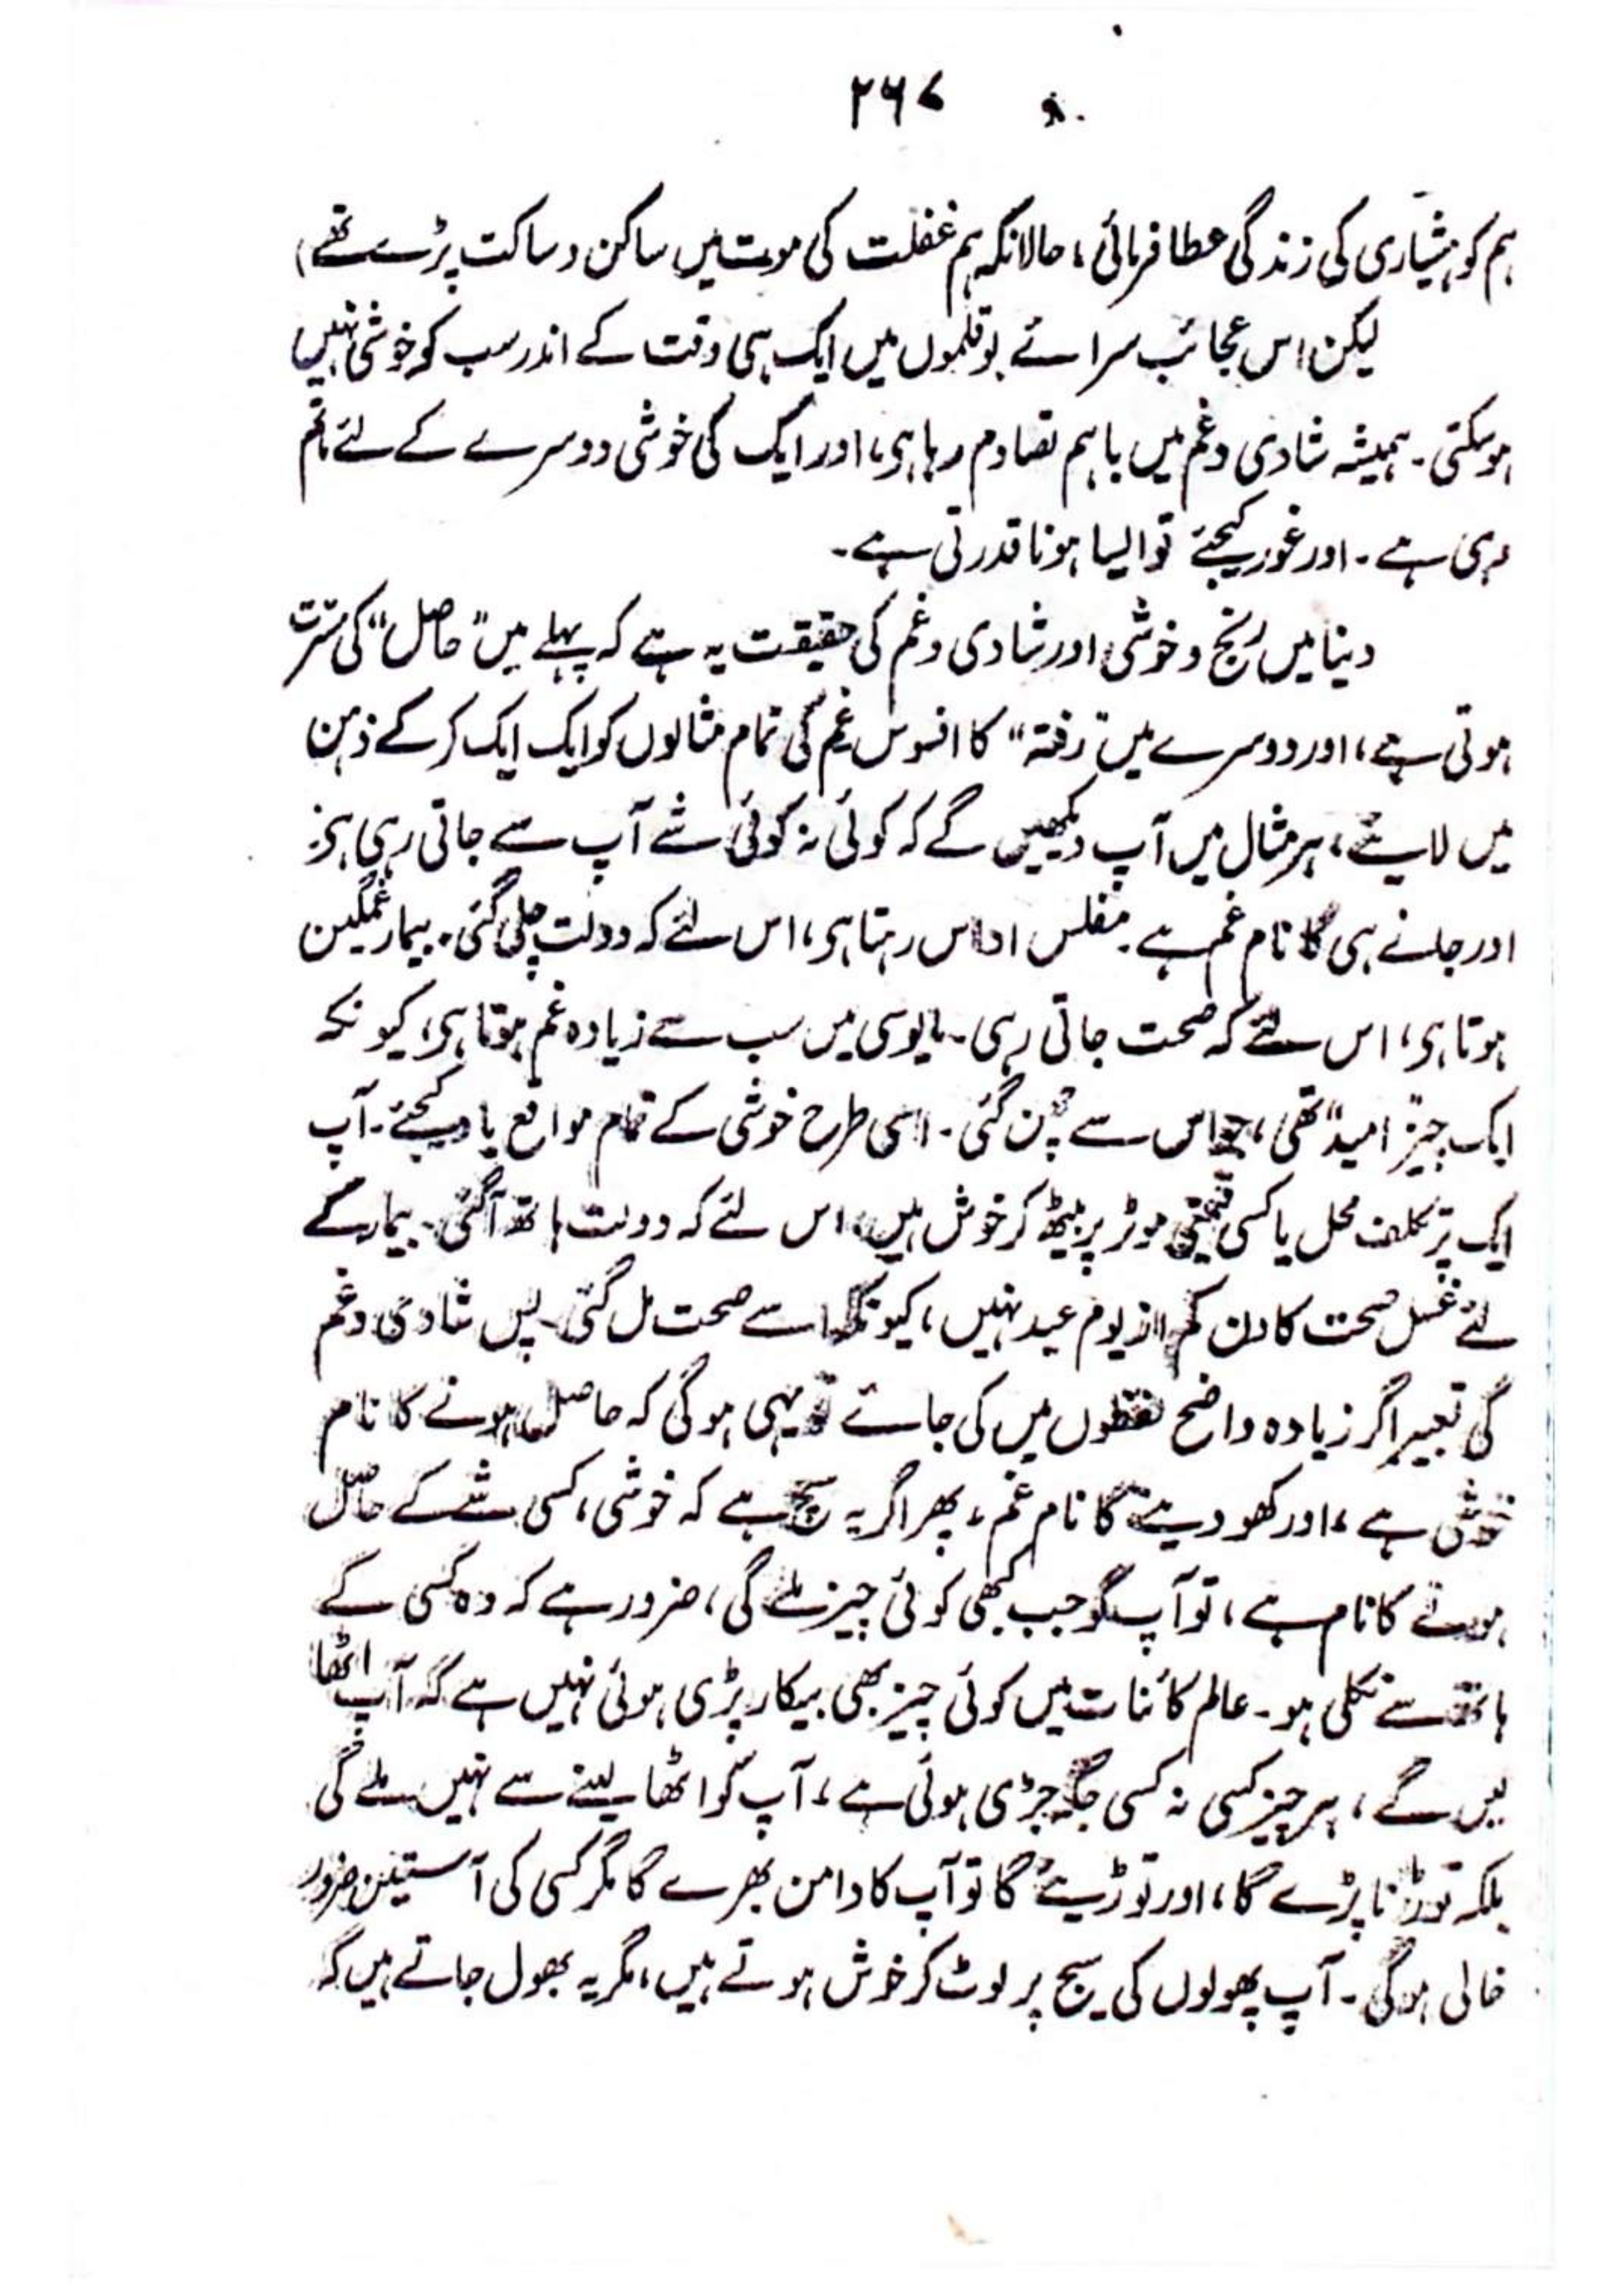 ۲۶۷
ہم کو ہشیاری کی زندگی عطا فرمائی، حالانکہ ہم غفلت کی موت میں ساکن و ساکت پڑے تھے)
لیکن اس عجائب سرائے بوقلموں میں ایک ہی وقت کے اندر سب کو خوشی نہیں
ہو سکتی۔ ہمیشہ شادی و غم میں باہم تصادم رہا ہی، اور ایک کی خوشی دوسرے کے لئے ماتم
رہی ہے۔ اور غور کیجئے تو ایسا ہونا قدرتی ہے۔
دنیا میں رنج و خوشی اور شادی و غم کی حقیقت یہ ہے کہ پہلے میں "حاصل" کی مسرت
ہوتی ہے، اور دوسرے میں "رفتہ" کا افسوس غم کی تمام مثالوں کو ایک ایک کر کے ذہن
میں لایئے، ہر مثال میں آپ دیکھیں گے کہ کوئی نہ کوئی شے آپ سے جاتی رہی ہی:
اور جانے ہی کا نام غم ہے۔ مفلس اداس رہتا ہی، اس لئے کہ دولت چلی گئی۔ بیمار غمگین
ہوتا ہی، اس لئے کہ صحت جاتی رہی۔ مایوسی میں سب سے زیادہ غم ہوتا ہی، کیونکہ
ایک چیز "امید" تھی، جو اس سے چھن گئی۔ اسی طرح خوشی کے تمام مواقع یاد کیجئے۔ آپ
ایک پر تکلف محل یا کسی قیمتی موٹر پر بیٹھ کر خوش ہیں، اس لئے کہ دولت ہاتھ آگئی۔ بیمار کے
لئے غسل صحت کا دن کم از یوم عید نہیں، کیونکہ اسے صحت مل گئی۔ پس شادی و غم
کی تعبیر اگر زیادہ واضح لفظوں میں کی جائے تو یہی ہوگی کہ حاصل ہونے کا نام
خوشی ہے، اور کھو دینے کا نام غم، پھر اگر یہ سچ ہے کہ خوشی، کسی شے کے حاصل
ہونے کا نام ہے، تو آپ کو جب کبھی کوئی چیز ملے گی، ضرور ہے کہ وہ کسی کے
ہاتھ سے نکلی ہو۔ عالم کائنات میں کوئی چیز بھی بیکار پڑی ہوئی نہیں ہے کہ آپ اٹھا
لیں گے، ہر چیز کسی نہ کسی جگہ جڑی ہوئی ہے، آپ کو اٹھا لینے سے نہیں ملے گی
بلکہ توڑنا پڑے گا، اور توڑیئے گا تو آپ کا دامن بھرے گا مگر کسی کی آستین ضرور
خالی ہوگی۔ آپ پھولوں کی سیج پر لوٹ کر خوش ہوتے ہیں، مگر یہ بھول جاتے ہیں کہ